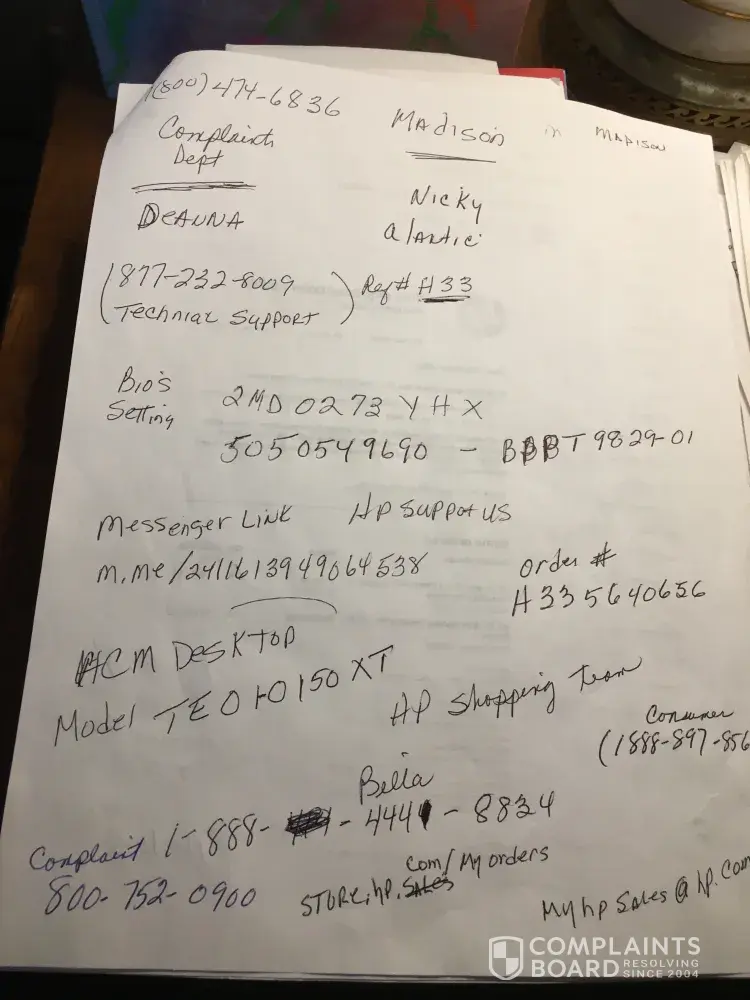 (800) 474-6836
Complaint
Dept
Madison
in MADISON
DEANNA
Nicky
alantic
(1877-232-8009
Technical Support)
Ref# H33
Bio's
Setting
2MD0273YHX
5050549690 - BBBT9829-01
Messenger Link HP Support US
m.me/2411613949064538
order #
H335640656
HCM DeskTOP
Model TE01-0150XT
HP Shopping Team
Consumer
(1888-897-856
Bella
Complaint 1-888- - 444 - 8834
800-752-0900
STORE.hp.com/Myorders
Myhp Sales @ hp.com
COMPLAINTS
BOARD RESOLVING
SINCE 2004